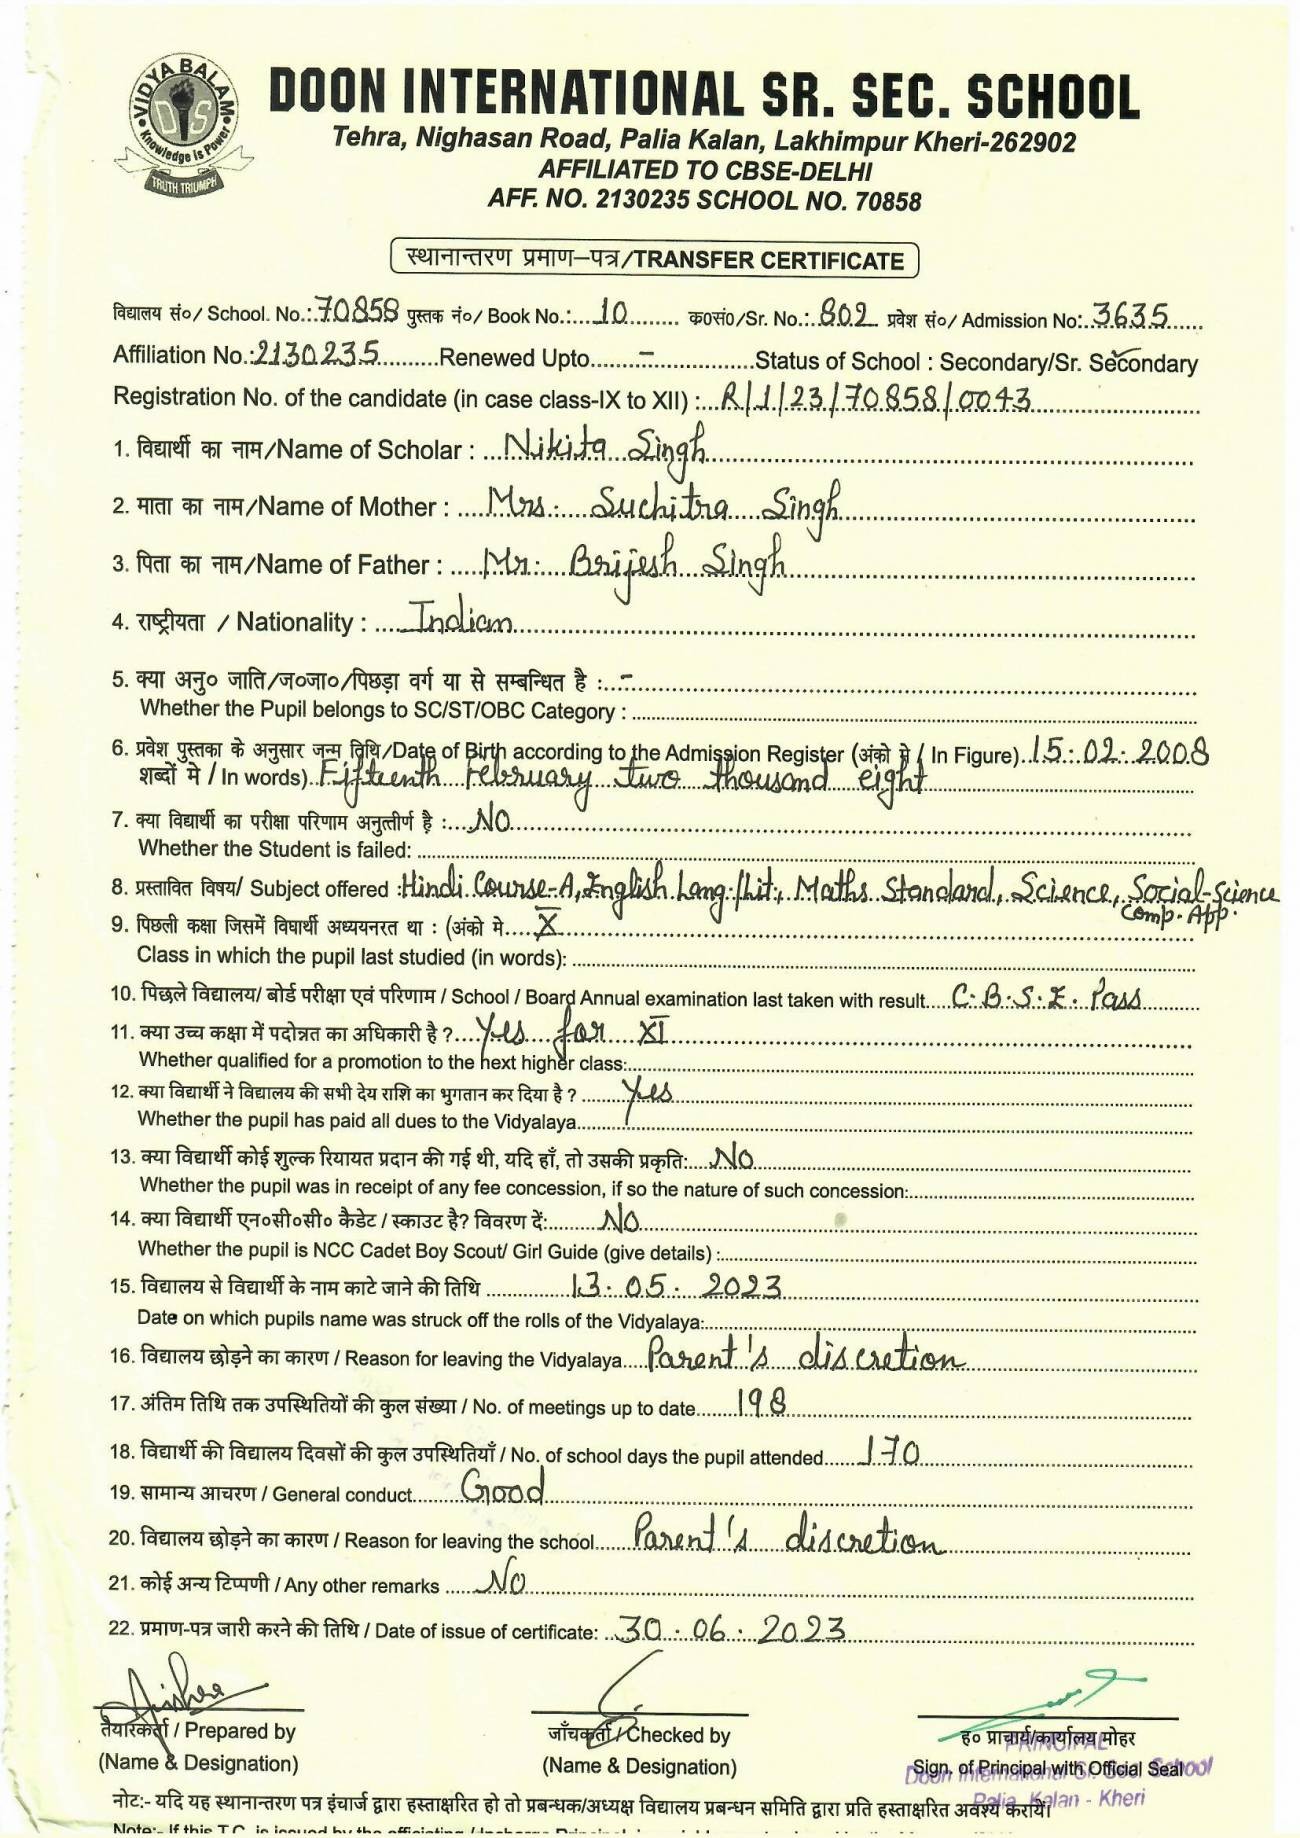 VIDYA BALAM
DIS
Knowledge is Power
TRUTH TRIUMPH
DOON INTERNATIONAL SR. SEC. SCHOOL
Tehra, Nighasan Road, Palia Kalan, Lakhimpur Kheri-262902
AFFILIATED TO CBSE-DELHI
AFF. NO. 2130235 SCHOOL NO. 70858
स्थानान्तरण प्रमाण–पत्र/TRANSFER CERTIFICATE
विद्यालय सं०/ School. No.: 70858 पुस्तक नं०/ Book No.: 10 क०सं०/Sr. No.: 802 प्रवेश सं०/ Admission No: 3635
Affiliation No.: 2130235 Renewed Upto - Status of School : Secondary/Sr. Secondary
Registration No. of the candidate (in case class-IX to XII) : R/1/23/70858/0043
1. विद्यार्थी का नाम/Name of Scholar : Nikita Singh
2. माता का नाम/Name of Mother : Mrs. Suchitra Singh
3. पिता का नाम/Name of Father : Mr. Brijesh Singh
4. राष्ट्रीयता / Nationality : Indian
5. क्या अनु० जाति/ज०जा०/पिछड़ा वर्ग या से सम्बन्धित है : -
Whether the Pupil belongs to SC/ST/OBC Category :
6. प्रवेश पुस्तका के अनुसार जन्म तिथि/Date of Birth according to the Admission Register (अंको मे / In Figure) 15.02.2008
शब्दों मे / In words) Fifteenth February two thousand eight
7. क्या विद्यार्थी का परीक्षा परिणाम अनुत्तीर्ण है : NO
Whether the Student is failed:
8. प्रस्तावित विषय/ Subject offered : Hindi Course-A, English Lang./Lit, Maths Standard, Science, Social-Science
Comp. App.
9. पिछली कक्षा जिसमें विघार्थी अध्ययनरत था : (अंको मे X
Class in which the pupil last studied (in words):
10. पिछले विद्यालय/ बोर्ड परीक्षा एवं परिणाम / School / Board Annual examination last taken with result C.B.S.E. Pass
11. क्या उच्च कक्षा में पदोन्नत का अधिकारी है ? Yes for XI
Whether qualified for a promotion to the next higher class:
12. क्या विद्यार्थी ने विद्यालय की सभी देय राशि का भुगतान कर दिया है ? Yes
Whether the pupil has paid all dues to the Vidyalaya
13. क्या विद्यार्थी कोई शुल्क रियायत प्रदान की गई थी, यदि हाँ, तो उसकी प्रकृति: No
Whether the pupil was in receipt of any fee concession, if so the nature of such concession:
14. क्या विद्यार्थी एन०सी०सी० कैडेट / स्काउट है? विवरण दें: No
Whether the pupil is NCC Cadet Boy Scout/ Girl Guide (give details) :
15. विद्यालय से विद्यार्थी के नाम काटे जाने की तिथि 13.05.2023
Date on which pupils name was struck off the rolls of the Vidyalaya:
16. विद्यालय छोड़ने का कारण / Reason for leaving the Vidyalaya Parent's discretion
17. अंतिम तिथि तक उपस्थितियों की कुल संख्या / No. of meetings up to date 198
18. विद्यार्थी की विद्यालय दिवसों की कुल उपस्थितियाँ / No. of school days the pupil attended 170
19. सामान्य आचरण / General conduct Good
20. विद्यालय छोड़ने का कारण / Reason for leaving the school Parent's discretion
21. कोई अन्य टिप्पणी / Any other remarks No
22. प्रमाण-पत्र जारी करने की तिथि / Date of issue of certificate: 30.06.2023
तैयारकर्ता / Prepared by जाँचकर्ता / Checked by ह० प्राचार्य/कार्यालय मोहर
(Name & Designation) (Name & Designation) Sign. of Principal with Official Seal
PRINCIPAL
Doon International Sr. Sec. School
Palia Kalan - Kheri
नोट:- यदि यह स्थानान्तरण पत्र इंचार्ज द्वारा हस्ताक्षरित हो तो प्रबन्धक/अध्यक्ष विद्यालय प्रबन्धन समिति द्वारा प्रति हस्ताक्षरित अवश्य करायें।
Note:- If this T.C. is issued by the officiating / Incharge Principal